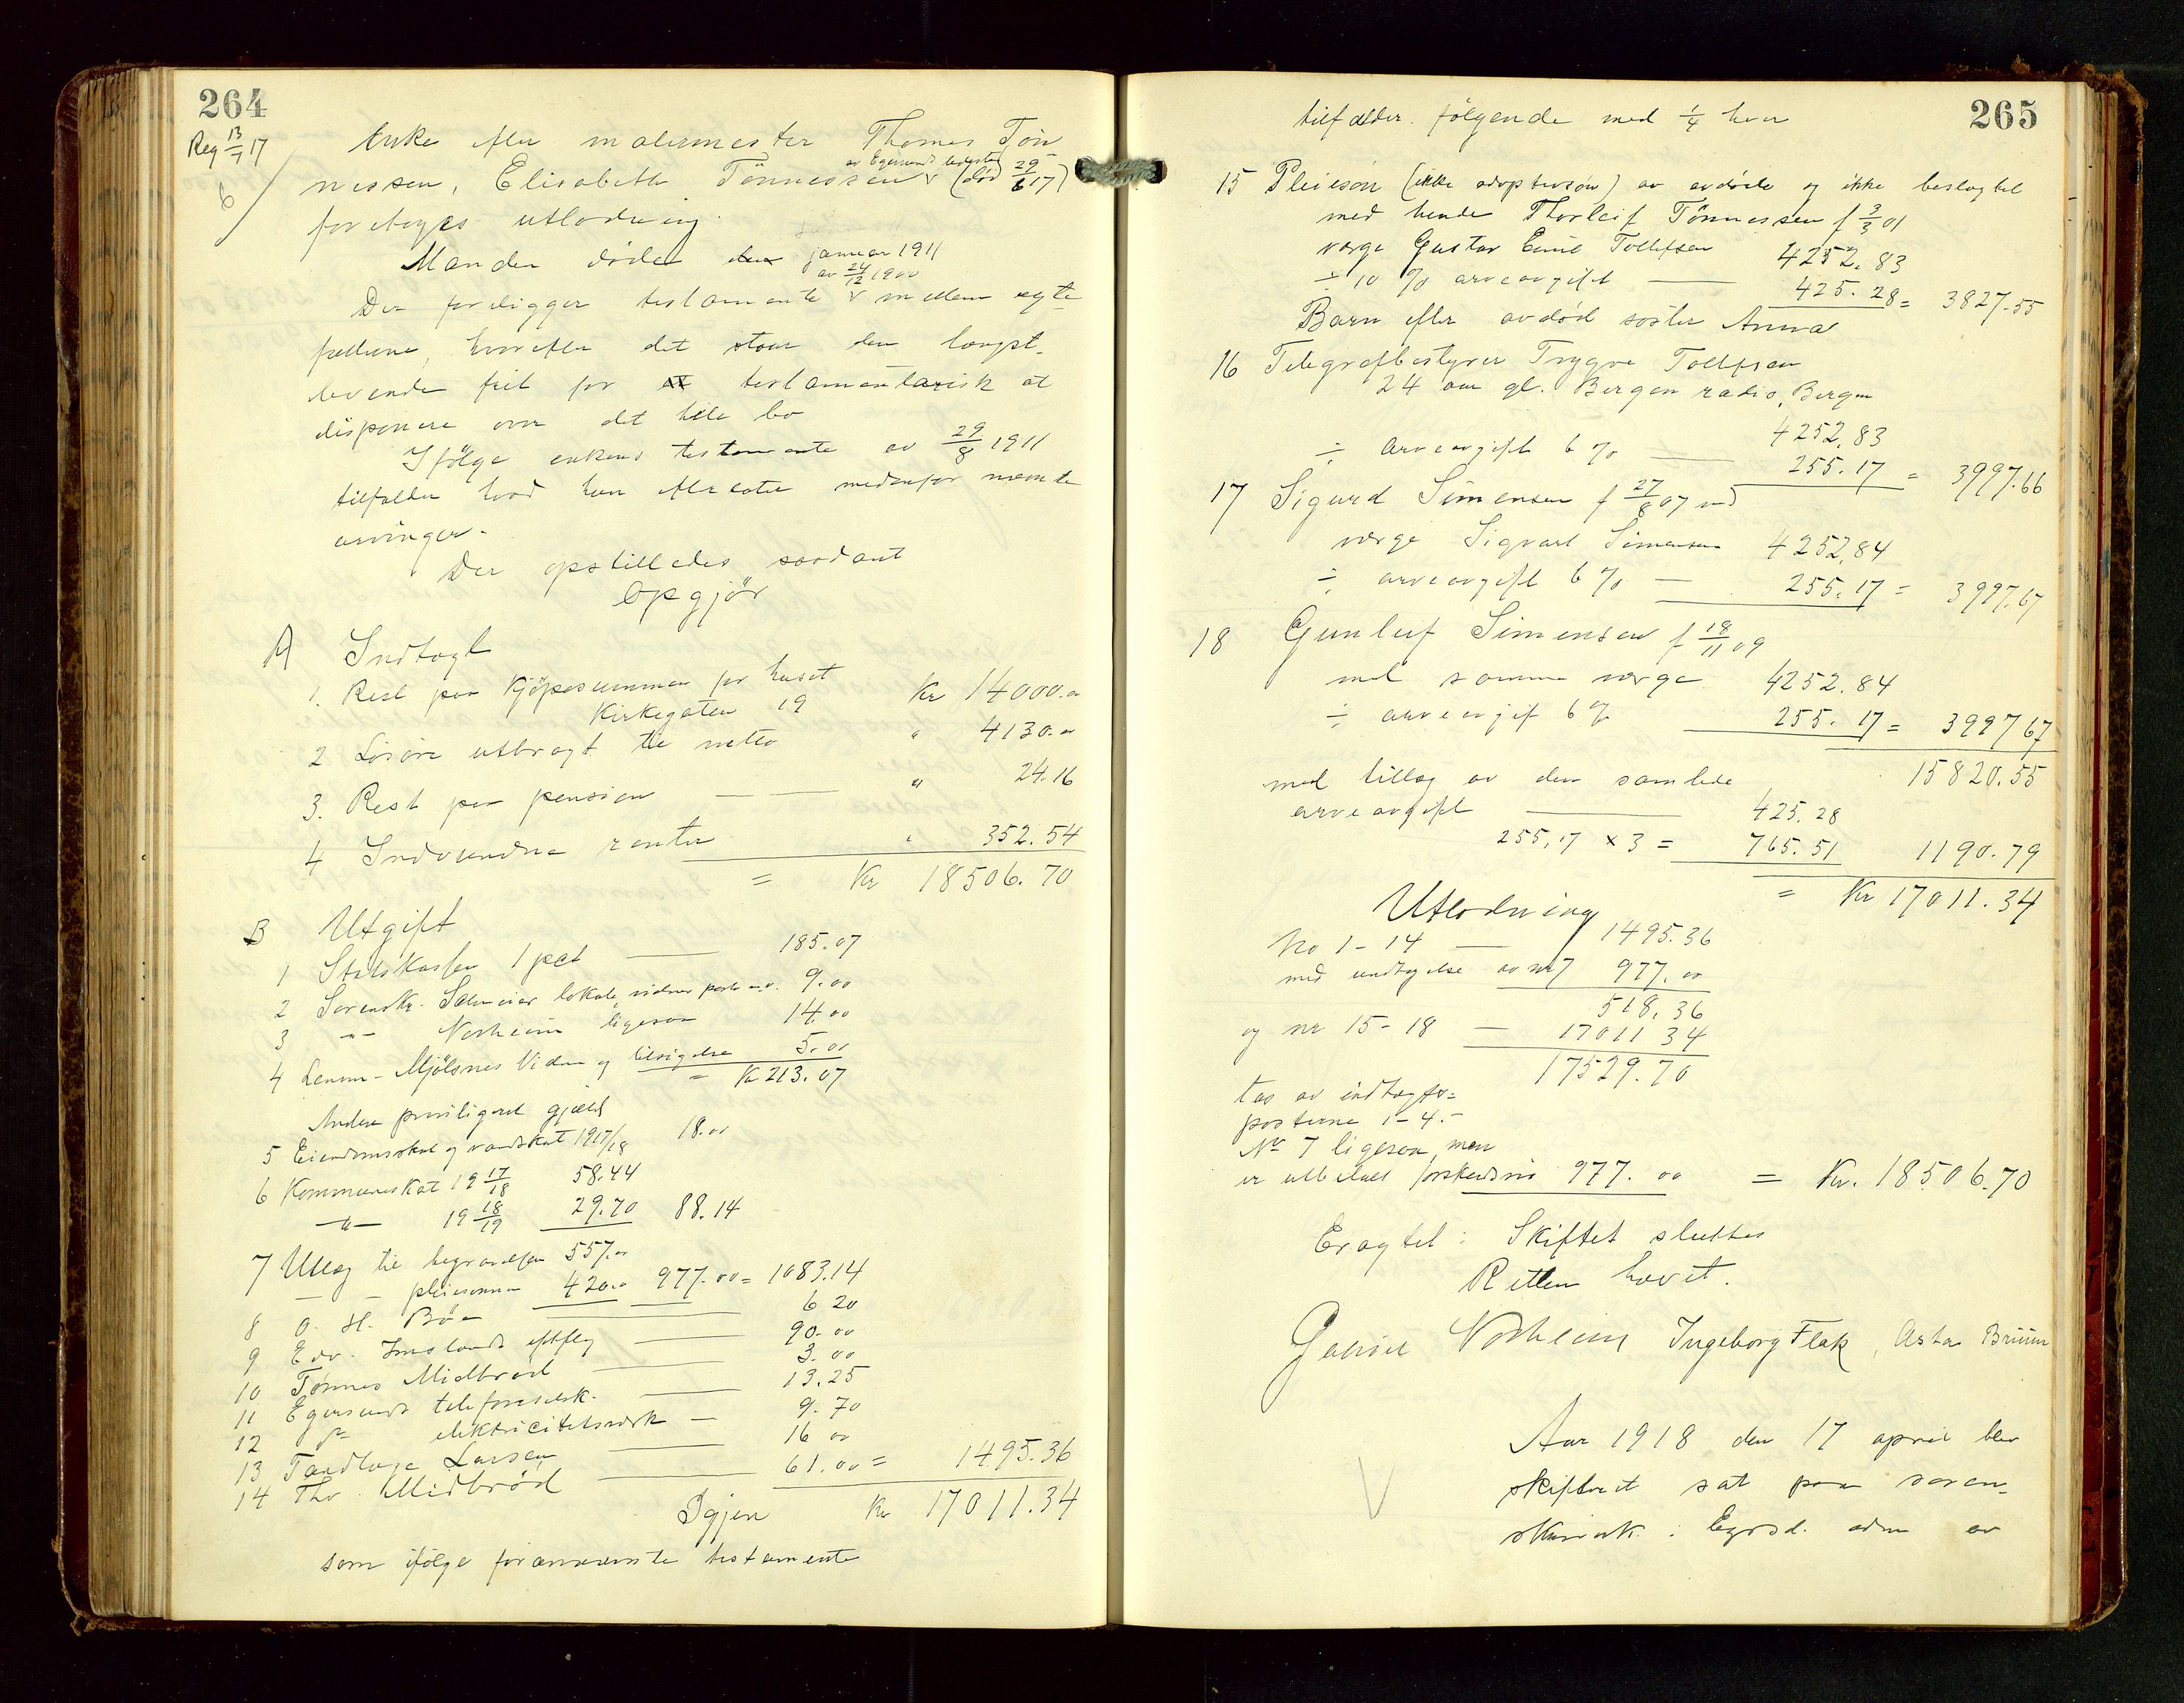 264
Reg 13/7 17
6
Enke efter malermester Thomas Tøn
nessen, Elisabeth Tønnessen (død 29/6 17)
av Egersunds ladested
foretoges utlodning.
Manden døde den januar 1911
av 24/2 1900
Der foreligger testamente mellem egte
fællerne, hvorefter det staar den længst-
levende frit for at testamentarisk at
disponere over det hele bo
Ifølge enkens testamente av 29/8 1911
tilfalder hvad hun efterlater nedenfor nævnte
arvinger.
Der opstilledes saadant
Opgjør
A Indtægt
1. Rest paa kjøpesummen for huset
Kirkegaten 19 Kr 14000.00
2 Løsøre utbragt til netto " 4130.00
3. Rest paa pension " 24.16
4 Indvundne renter " 352.54
= Kr 18506.70
B Utgift
1 Statskassen 1 pct 185.07
2 Sorenskr. Salvesen lokale, vidner porto m.v. 9.00
3 -"- Norheim ligesaa 14.00
4 Lensm. Mjølsnes Vidne og tilsigelse 5.00
= Kr 213.07
Anden priviligeret gjæld
5 Eiendomsskat og vandskat 1917/18 18.00
6 Kommuneskat 19 17/18 58.44
-"- 19 18/19 29.70 88.14
7 Utlæg til begravelsen 557.00
- - pleiesønnen 420.00 977.00 = 1083.14
8 O. H. Bøe 6 20
9 Edv. Imslands eftflg 90.00
10 Tønnes Midbrød 3.00
11 Egersunds telefonselsk. 13.25
12 -"- elektricitetsverk - 9.70
13 Tandlæge Larsen 16 00
14 Th. Midbrød 61.00 = 1495.36
Igjen Kr 17011.34
som ifølge forannævnte testamente
265
tilfalder følgende med 1/4 hver
15 Pleiesøn (ikke adoptivsøn) av avdøde og ikke beslegtet
med hende Thorleif Tønnessen f 3/3 01
verge Gustav Emil Tollefsen 4252.83
÷ 10 % arveavgift 425.28 = 3827.55
Barn efter avdød søster Anna
16 Telegrafbestyrer Trygve Tollefsen
24 aar gl. Bergen radio, Bergen
4252.83
÷ arveavgift 6 % 255.17 = 3997.66
17 Sigurd Simensen f 27/8 07 med
verge Sigvart Simensen 4252,84
÷ arveavgift 6 % 255.17 = 3997.67
18 Gunleif Simensen f 18/11 09
med samme verge 4252.84
÷ arveavgift 6 % 255.17 = 3997 67
15820.55
med tillæg av den samlede
arveavgift 425.28
255,17 x 3 = 765.51 1190.79
= Kr 17011.34
Utlodning
No 1-14 1495.36
med undtagelse av nr 7 977.00
518.36
og nr 15-18 17011 34
17529.70
tas av indtægts-
posterne 1-4.-
Nr 7 ligesaa, men
er utbetalt forskudsvis 977.00 = Kr. 18506.70
Eragtet: Skiftet sluttes
Retten hævet.
Gabriel Norheim Ingeborg Flak, Asta Bruun
V
Aar 1918 den 17 april blev
skifteret sat paa soren-
skriverk. i Egrsd. adm av